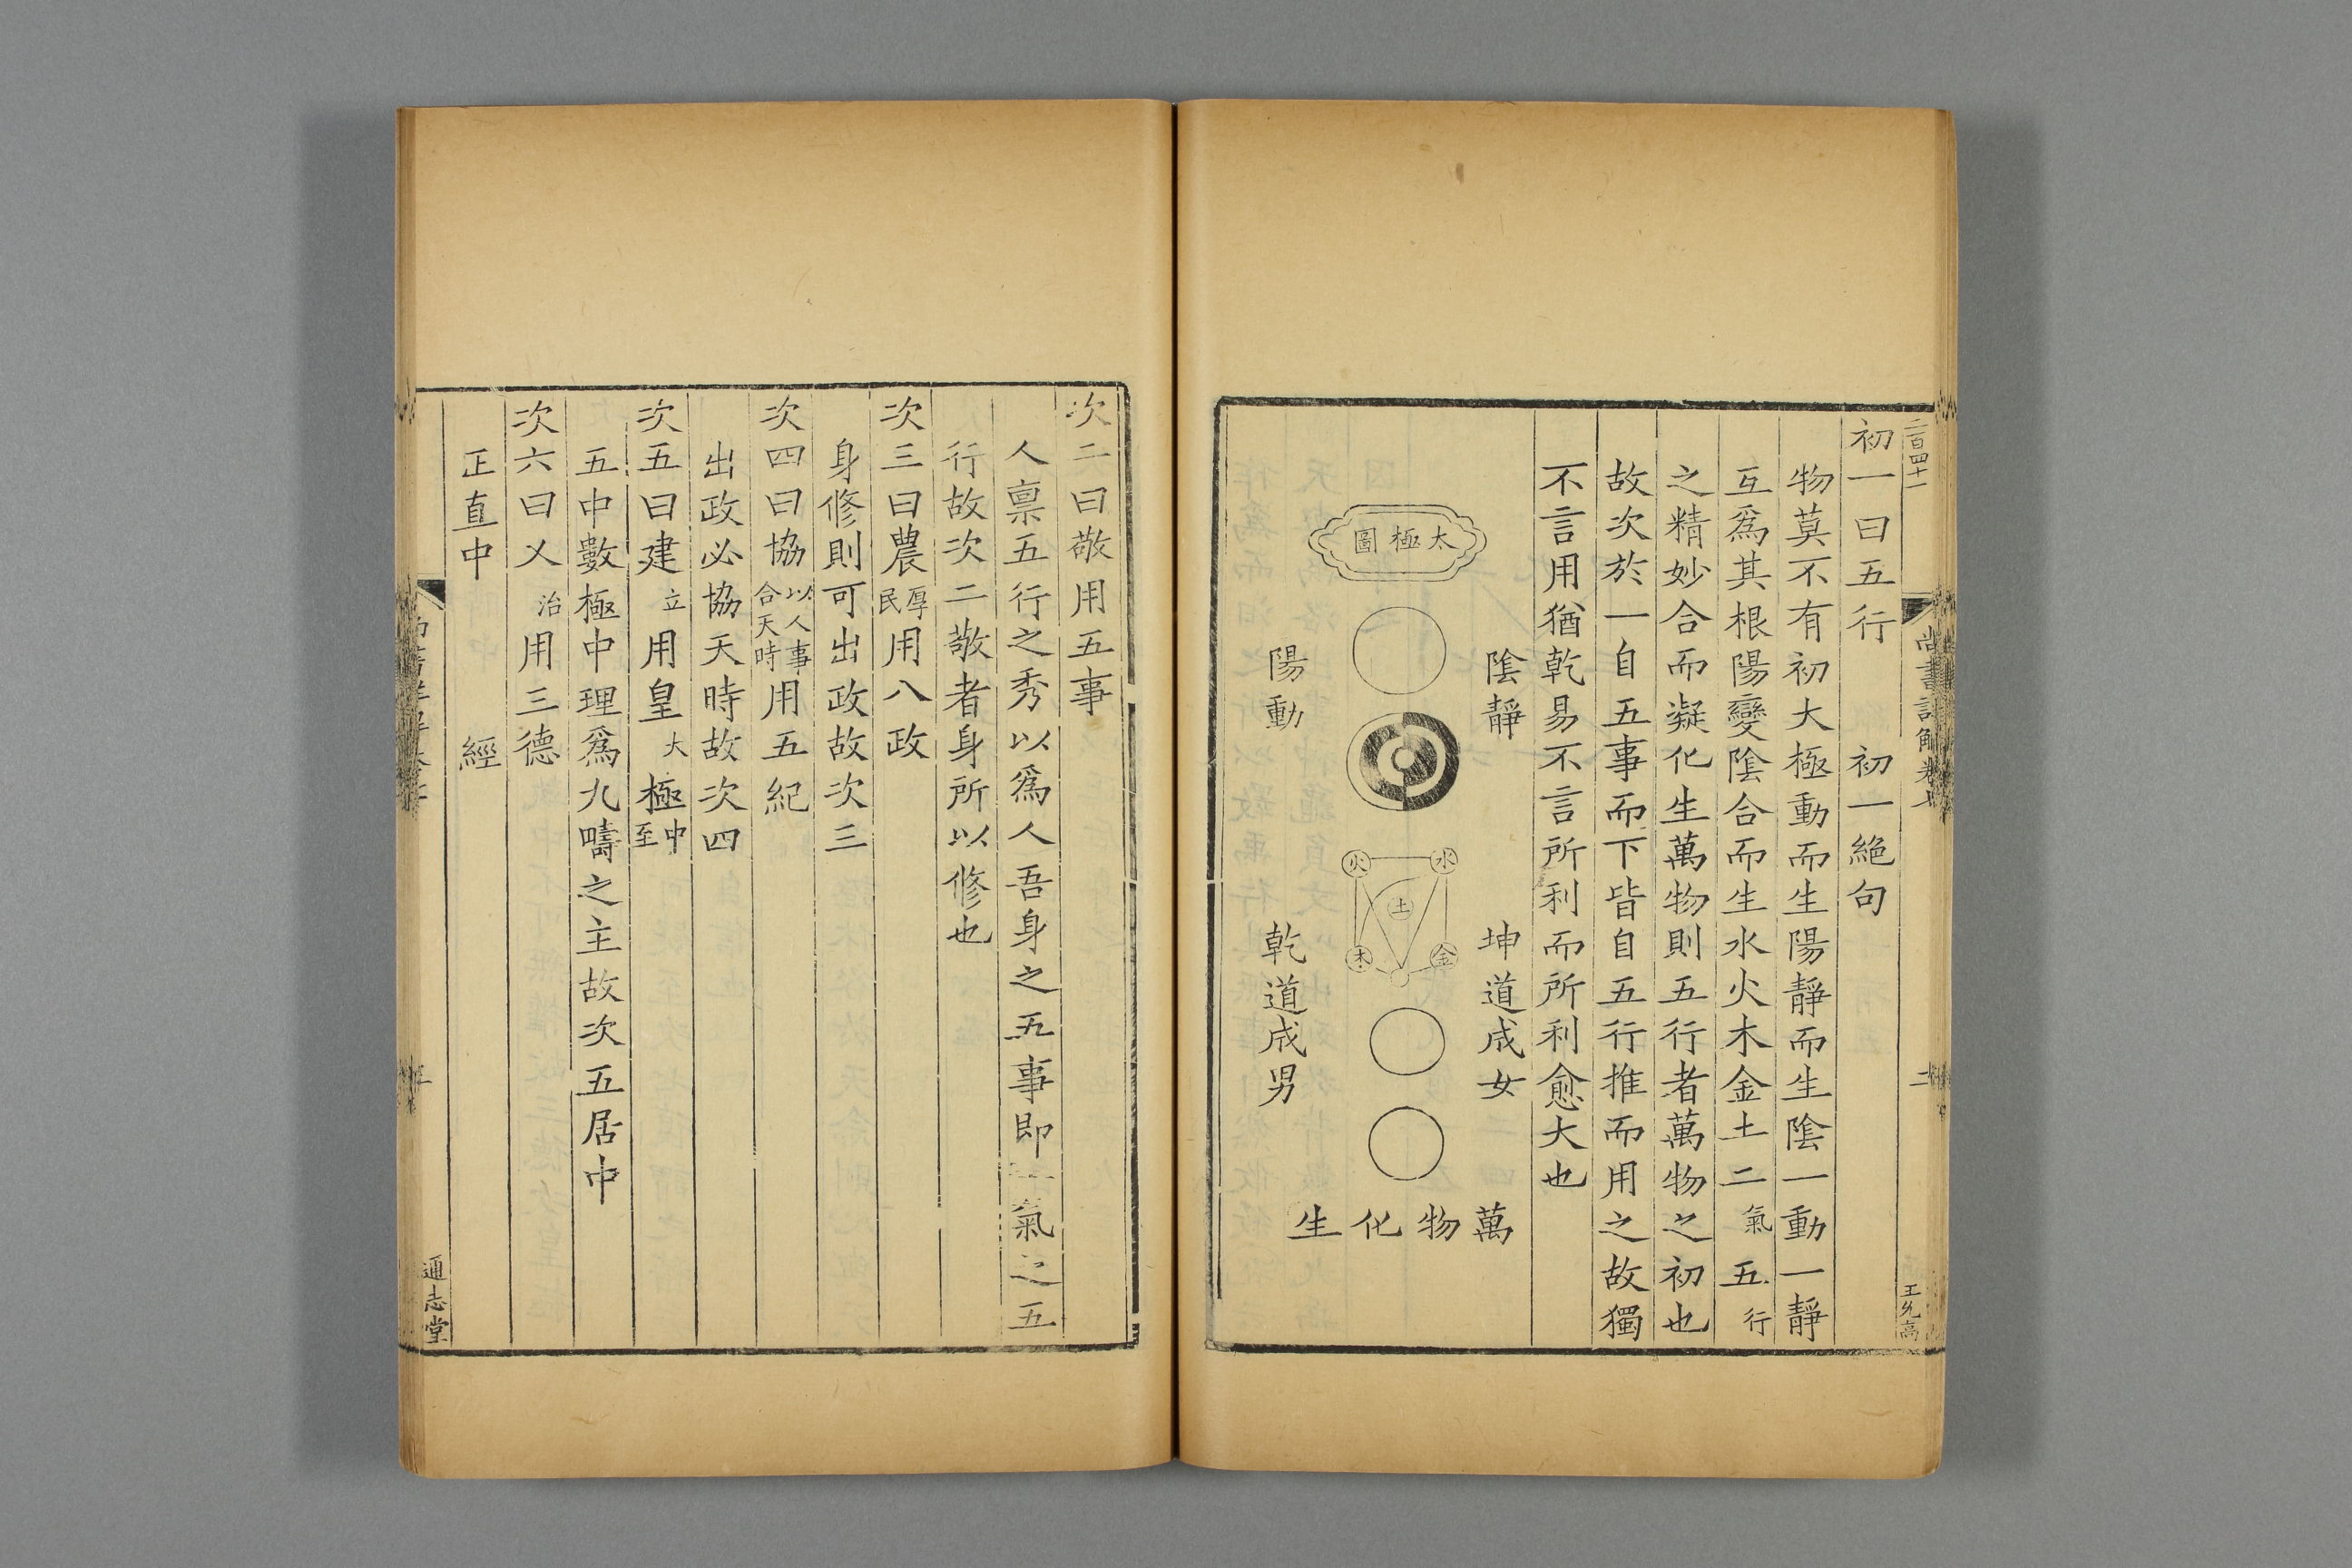 二百四十一
初一曰五行 初一絶句
物莫不有初大極動而生陽靜而生陰一動一靜
互爲其根陽變陰合而生水火木金土二氣五行
之精妙合而凝化生萬物則五行者萬物之初也
故次於一自五事而下皆自五行推而用之故獨
不言用猶乾易不言所利而所利愈大也
太極圖
陰靜
陽動
水
火
土
金
木
坤道成女
乾道成男
萬物化生
尚書詳解卷七
二
次二曰敬用五事
人稟五行之秀以爲人吾身之五事卽二氣之五
行故次二敬者身所以修也
次三曰農厚民用八政
身修則可出政故次三
次四曰協以人事合天時用五紀
出政必協天時故次四
次五曰建立用皇大極中至
五中數極中理爲九疇之主故次五居中
次六曰乂治用三德
正直中 經
通志堂